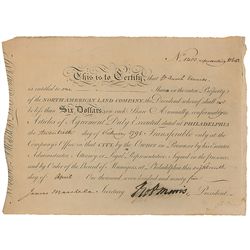 This is to Certify, that
is entitled to one Share in the entire Property
of the NORTH AMERICAN LAND COMPANY, the Dividend whereof shall not
be less than Six Dollars on each Share Annually, conformably to
Articles of Agreement Duly Executed, dated at PHILADELPHIA
the day of 1795 Transferable only at the
Company's Office in that CITY, by the Owner in Person or by his Executor
Administrator, Attorney or Legal Representative Signed in the presence
and by Order of the Board of Managers, at Philadelphia this
day of April One thousand seven hundred and ninety
James Marshall Secretary Robt Morris President